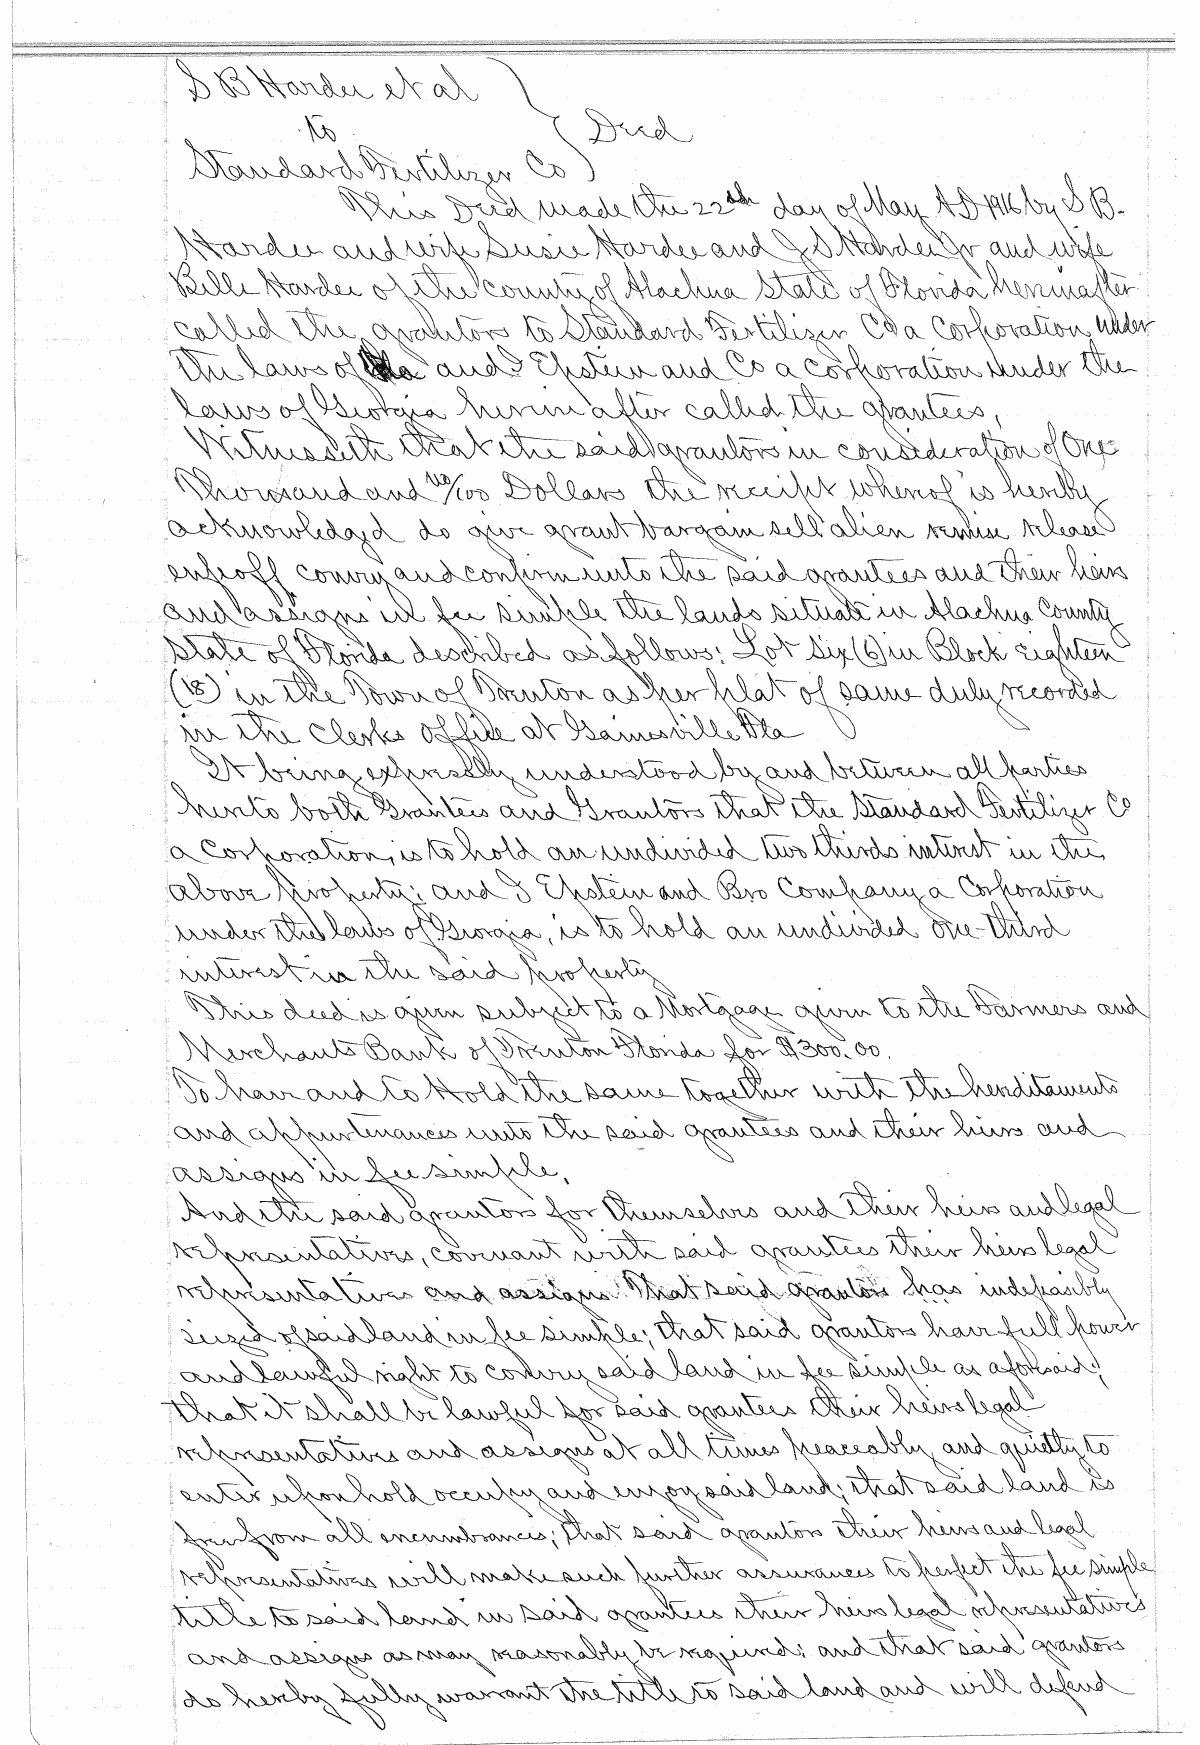 S B Hardee et al
to } Deed
Standard Fertilizer Co
This Deed made the 22nd day of May A D 1916 by S B.
Hardee and wife Susie Hardee and J S Hardee Jr and wife
Belle Hardee of the county of Alachua State of Florida hereinafter
called the grantors to Standard Fertilizer Co a Corporation under
the laws of Fla and I Epstein and Co a corporation under the
laws of Georgia herein after called the grantees,
Witnesseth that the said grantors in consideration of One
Thousand and no/100 Dollars the receipt whereof is hereby
acknowledged do give grant bargain sell alien remise release
enfeoff convey and confirm unto the said grantees and their heirs
and assigns in fee simple the lands situate in Alachua County
State of Florida described as follows: Lot Six (6) in Block Eighteen
(18) in the Town of Trenton as per plat of same duly recorded
in the Clerks office at Gainesville Fla
It being expressly understood by and between all parties
hereto both Grantees and Grantors that the Standard Fertilizer Co
a Corporation, is to hold an undivided two thirds interest in the
above property; and I Epstein and Bro Company a Corporation
under the laws of Georgia, is to hold an undivided one-third
interest in the said property
This deed is given subject to a Mortgage given to the Farmers and
Merchants Bank of Trenton Florida for $300.00.
To have and to Hold the same together with the hereditaments
and appurtenances unto the said grantees and their heirs and
assigns in fee simple.
And the said grantors for themselves and their heirs and legal
representatives, covenant with said grantees their heirs legal
representatives and assigns That said grantors has indefeasibly
seized of said land in fee simple; that said grantors have full power
and lawful right to convey said land in fee simple as aforesaid;
that it shall be lawful for said grantees their heirs legal
representatives and assigns at all times peaceably and quietly to
enter upon hold occupy and enjoy said land; that said land is
free from all encumbrances; that said grantors their heirs and legal
representatives will make such further assurances to perfect the fee simple
title to said land in said grantees their heirs legal representatives
and assigns as may reasonably be required; and that said grantors
do hereby fully warrant the title to said land and will defend